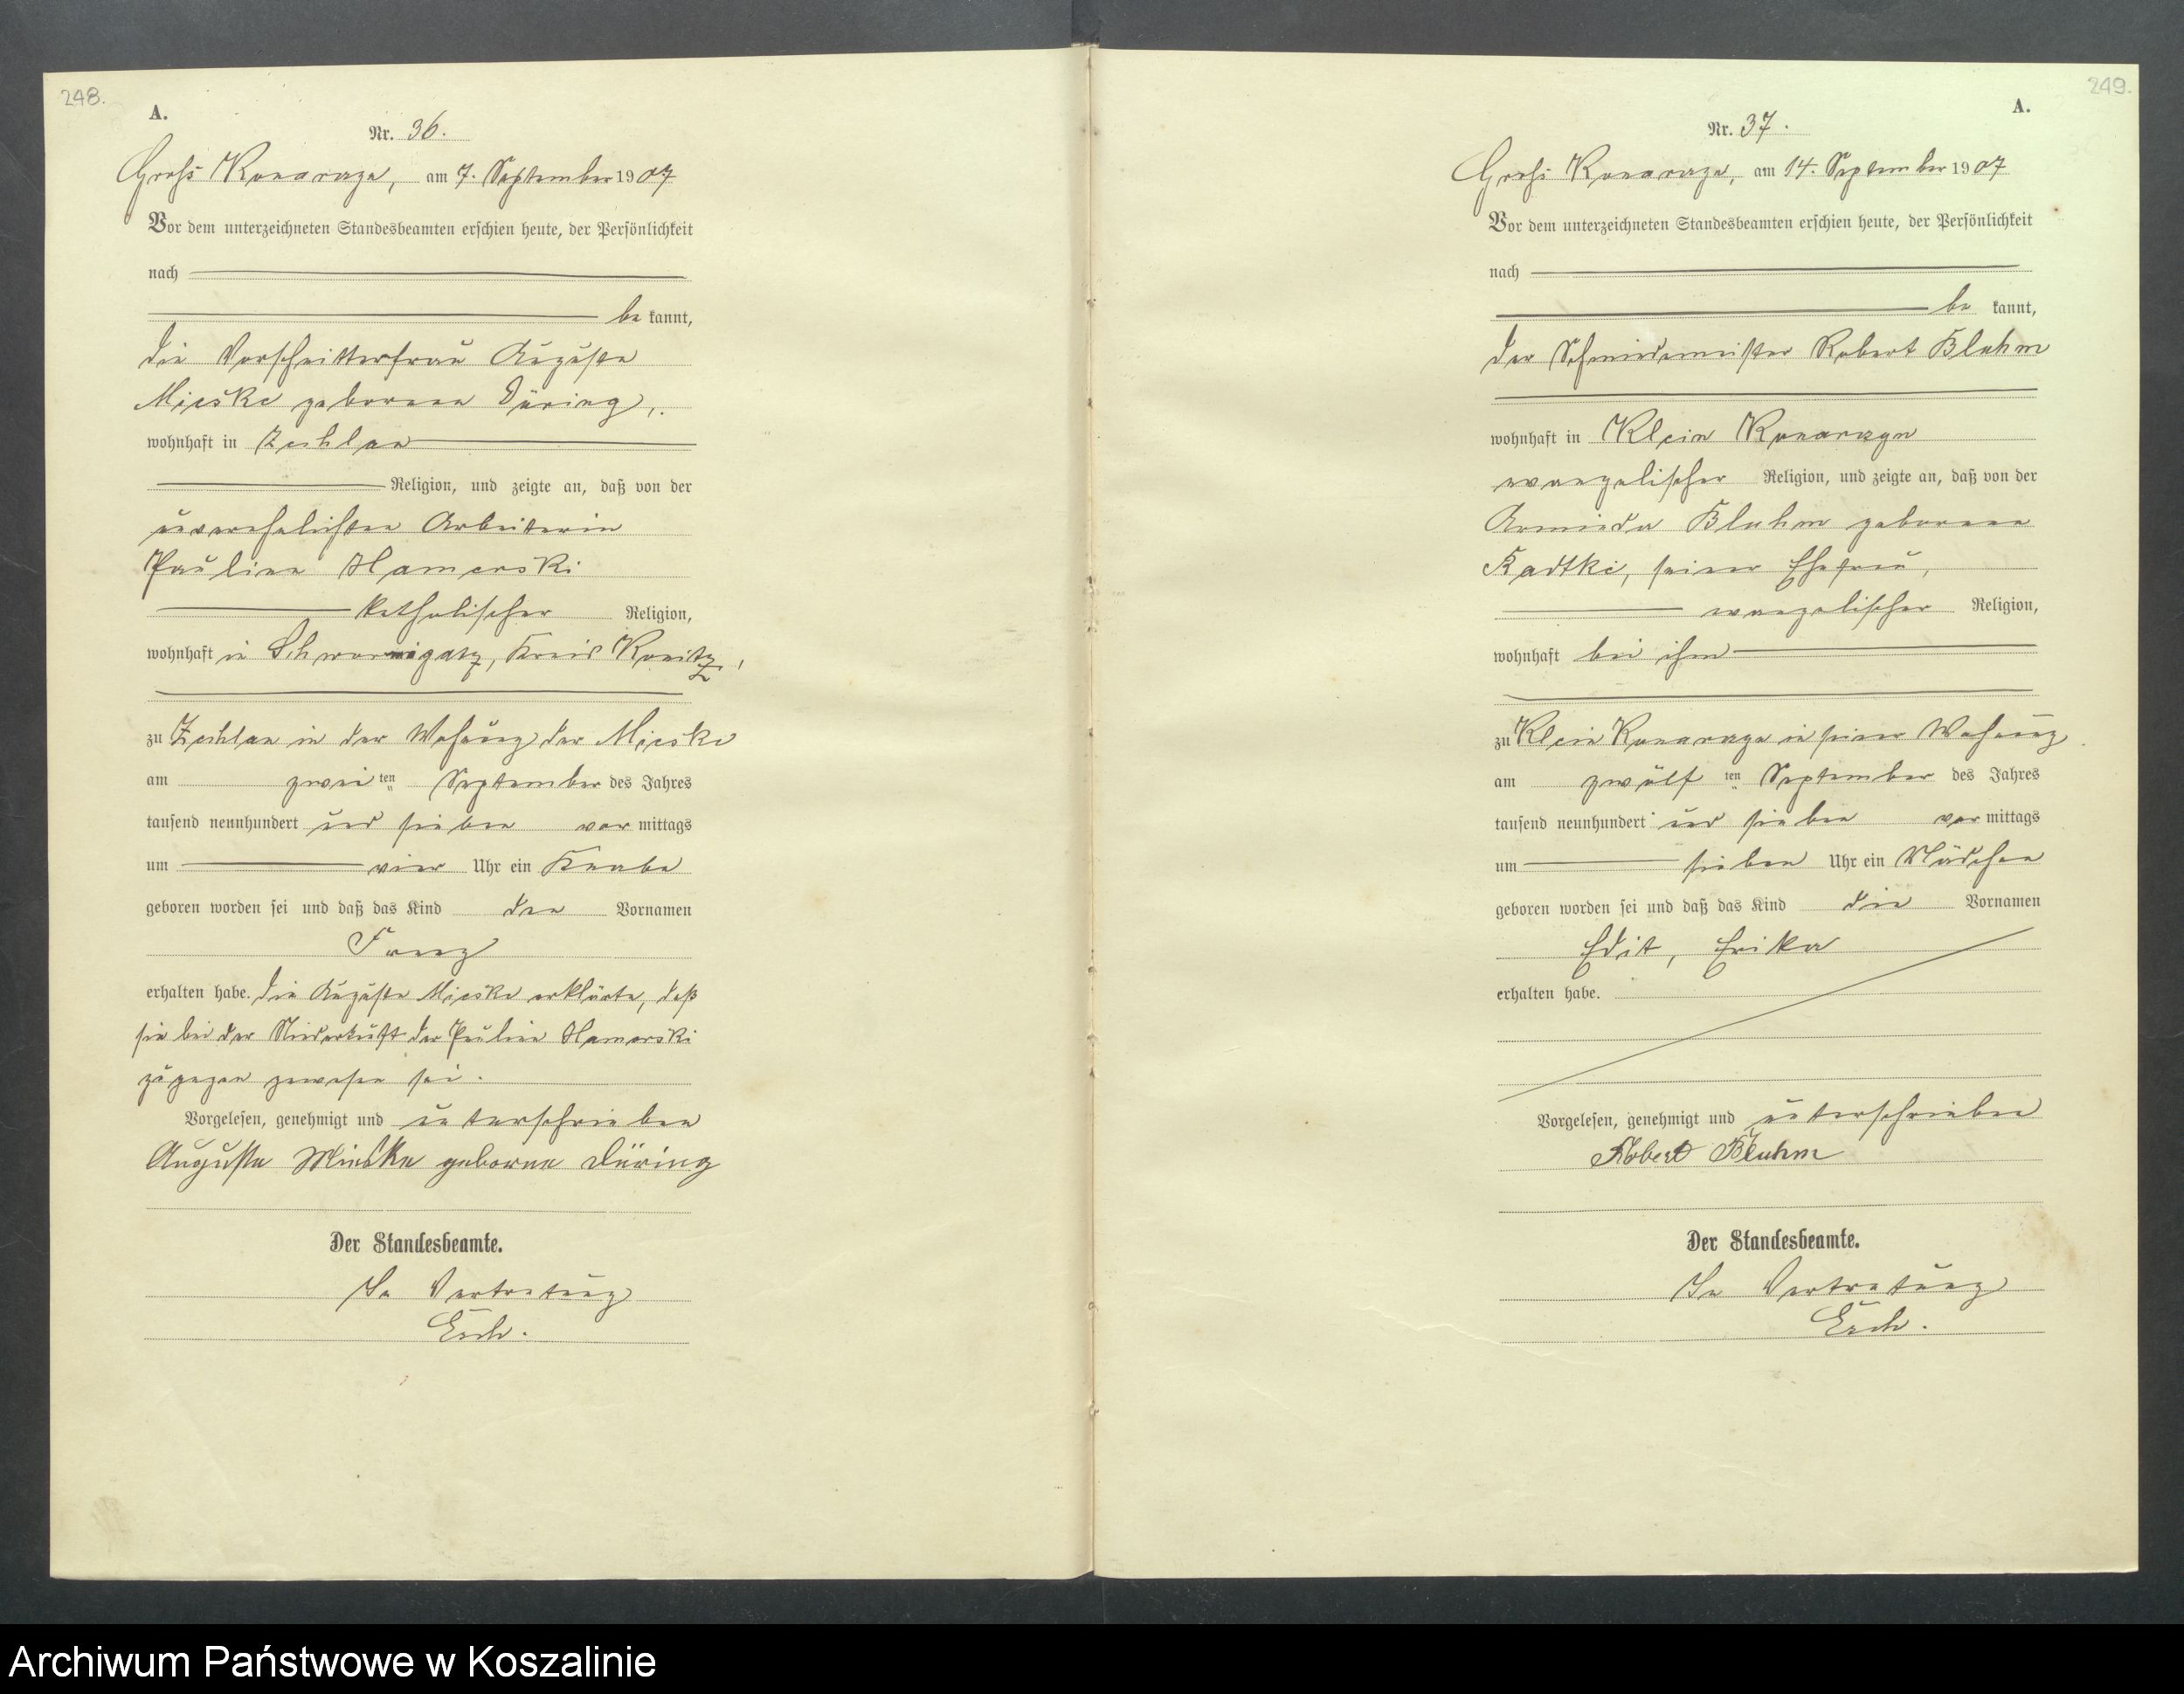 248.
A.
Nr. 36.
Groß Konarzyn, am 7. September 1907
Vor dem unterzeichneten Standesbeamten erschien heute, der Persönlichkeit
nach
be kannt,
die Vorschnitterfrau Auguste
Mieske geborene Düring,
wohnhaft in Zechlau
Religion, und zeigte an, daß von der
unverehelichten Arbeiterin
Pauline Hamerski
katholischer Religion,
wohnhaft in Kreis Konitz,
zu Zechlau in der Wohnung der Mieske
am zwei ten September des Jahres
tausend neunhundert und sieben vor mittags
um vier Uhr ein Knabe
geboren worden sei und daß das Kind den Vornamen
Franz
erhalten habe. Die Auguste Mieske erklärte, daß
sie bei der Niederkunft der Pauline Hamerski
zugegen gewesen sei.
Vorgelesen, genehmigt und unterschrieben
Auguste Mieske geborne Düring
Der Standesbeamte.
In Vertretung
Esch.
249.
A.
Nr. 37.
Groß Konarzyn, am 14. September 1907
Vor dem unterzeichneten Standesbeamten erschien heute, der Persönlichkeit
nach
be kannt,
der Schmiedemeister Robert Bluhm
wohnhaft in Klein Konarzyn
evangelischer Religion, und zeigte an, daß von der
Bluhm geborene
Radtke, seiner Ehefrau,
evangelischer Religion,
wohnhaft bei ihm
zu Klein Konarzyn in seiner Wohnung
am zwölf ten September des Jahres
tausend neunhundert und sieben vor mittags
um sieben Uhr ein Mädchen
geboren worden sei und daß das Kind die Vornamen
Edit, Erika
erhalten habe.
Vorgelesen, genehmigt und unterschrieben
Robert Bluhm
Der Standesbeamte.
In Vertretung
Esch.
Archiwum Państwowe w Koszalinie